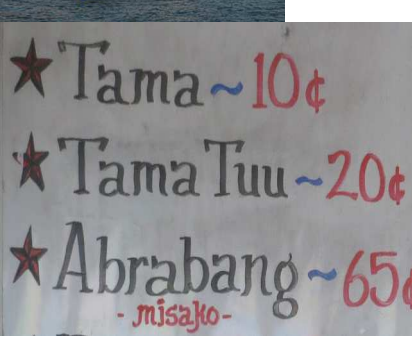 ★ Tama ~ 10¢
★ Tama Tuu ~ 20¢
★ Abrabang ~ 65¢
- misako -